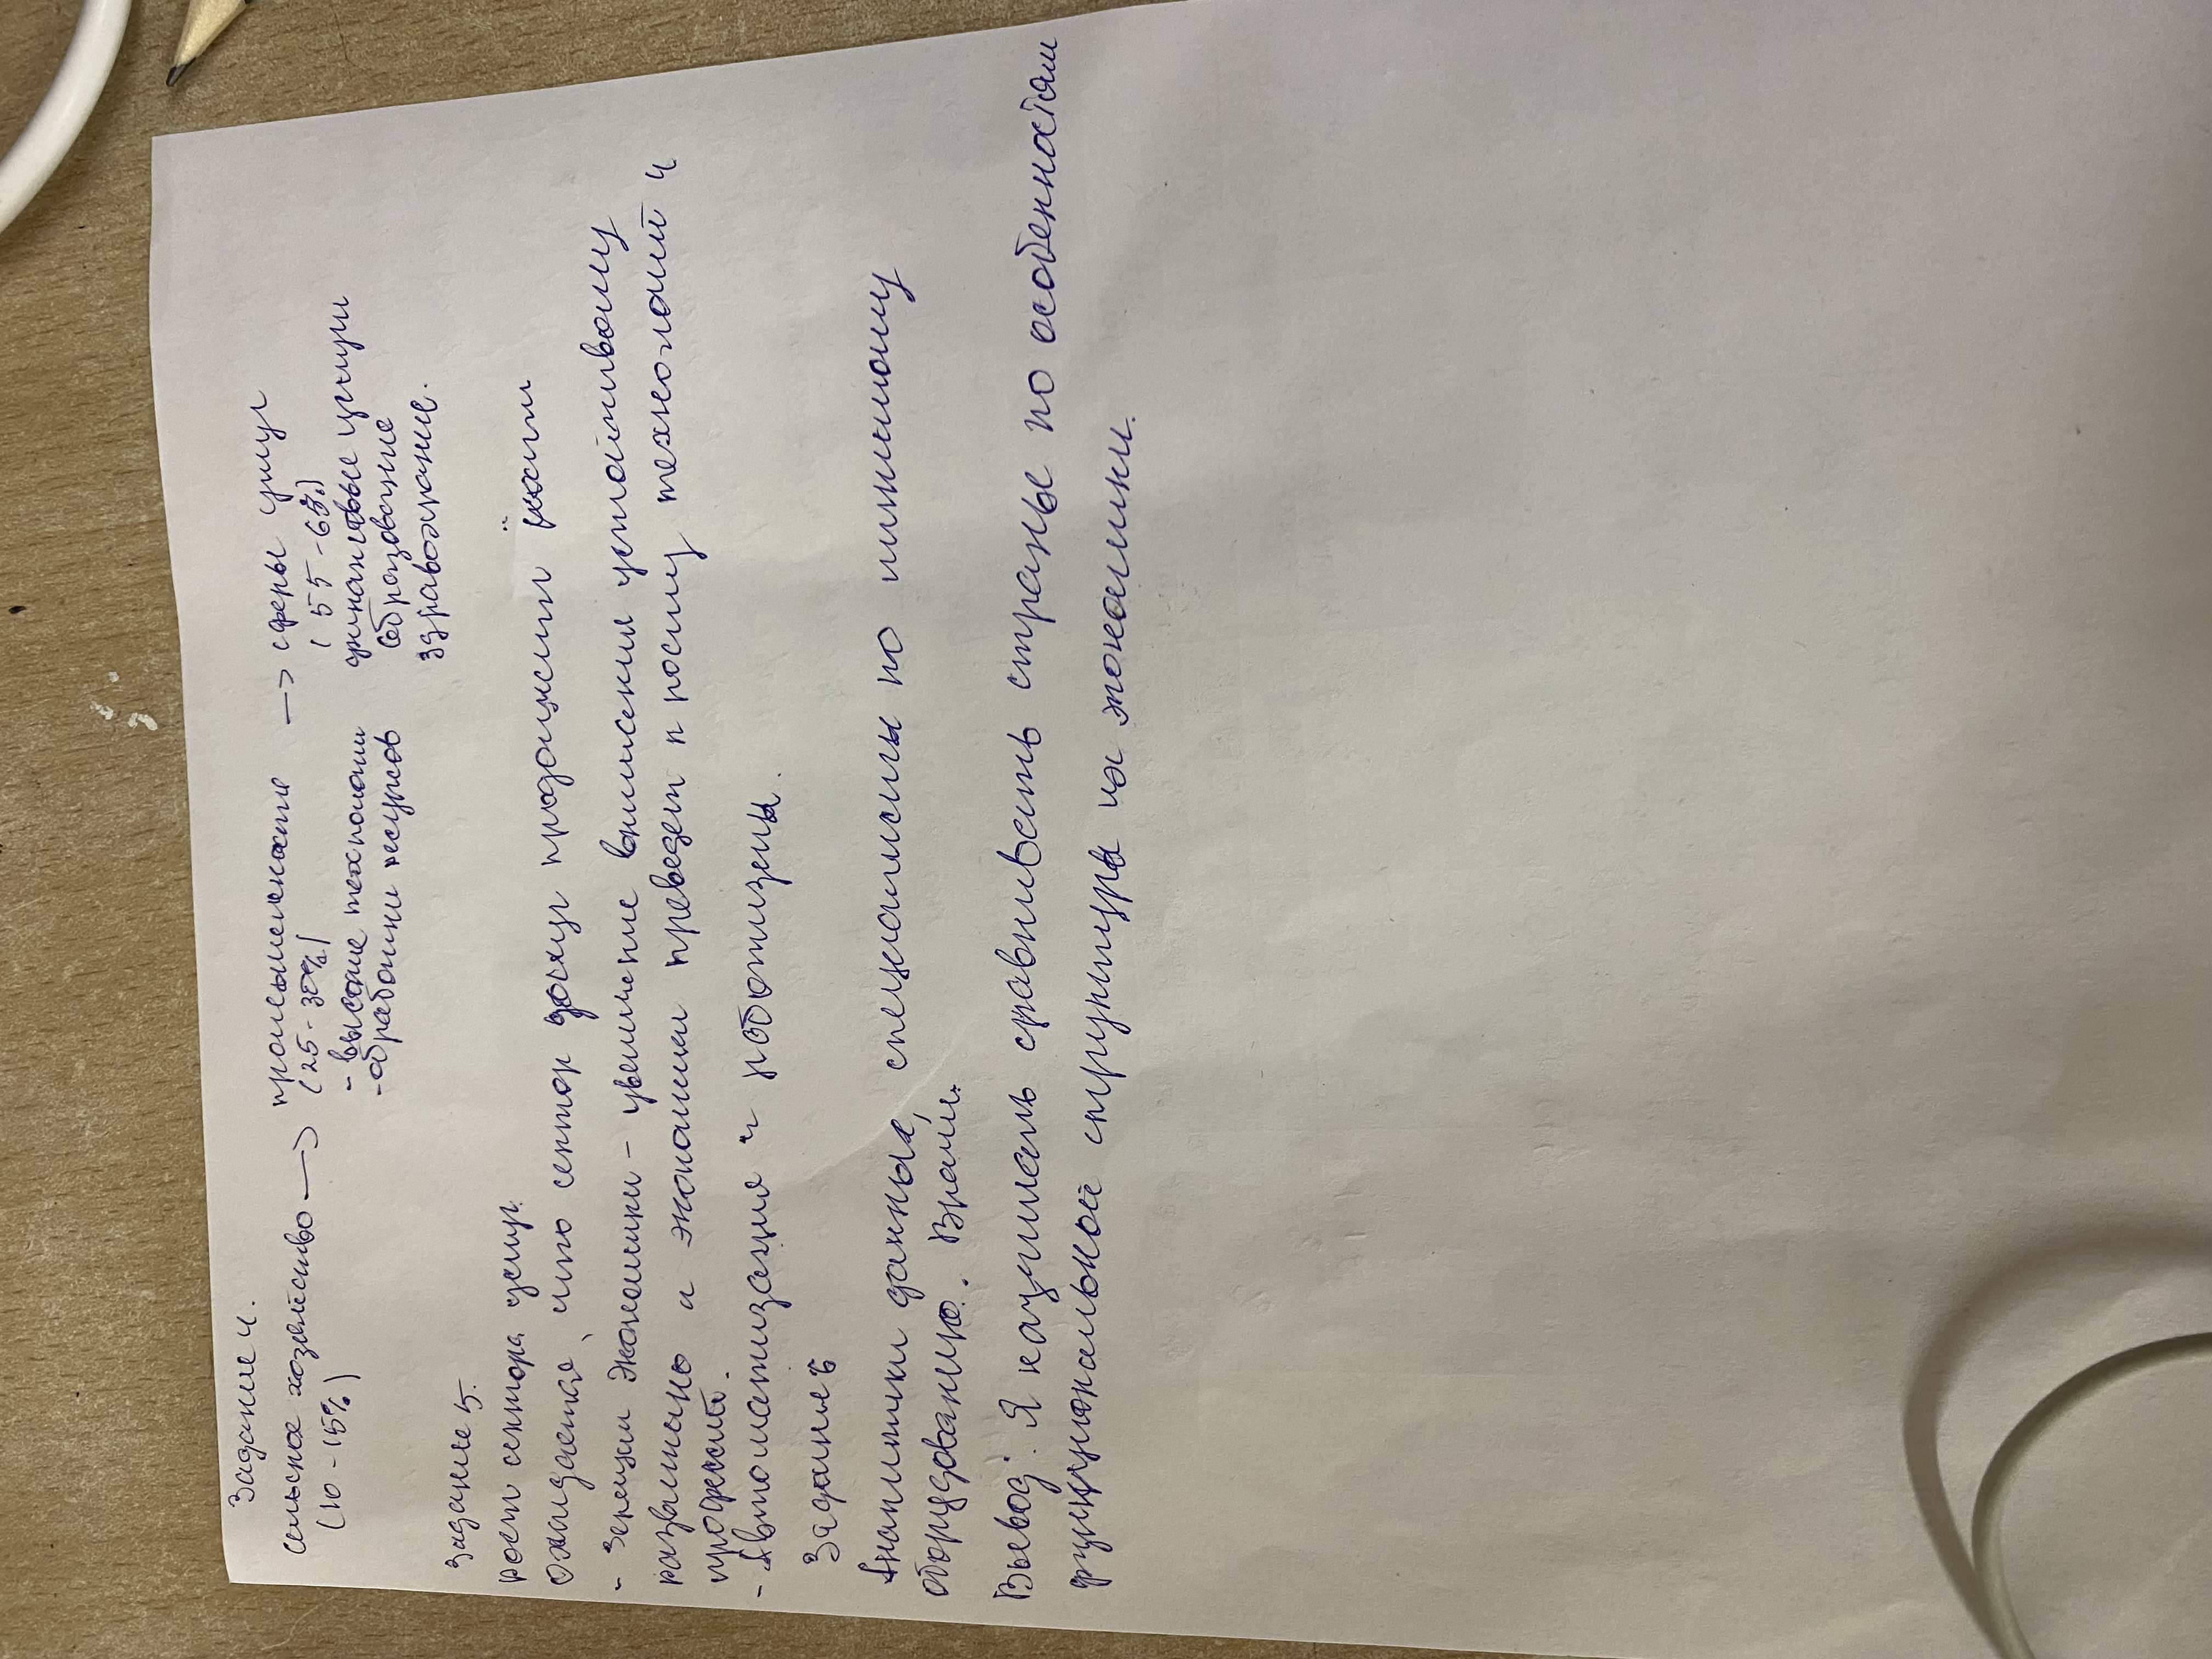 Задание 4.
сельское хозяйство → промышленность → сферы услуг
(10-15%) (25-30%) (55-65%)
- высокие технологии финансовые услуги
- обработки ресурсов образование
здравоохранение.
Задание 5.
рост сектора услуг.
ожидается, что сектор услуг продолжит расти
- Зелёная экономики - увеличение внимания устойчивому
развитию и экономики приведет к росту технологий и
профессий.
- Автоматизация и роботизация.
Задание 6
Аналитики данных, специалисты по
оборудованию. Врачи.
Вывод: Я научилась сравнивать страны по особенностям
функциональной структуры их экономики.